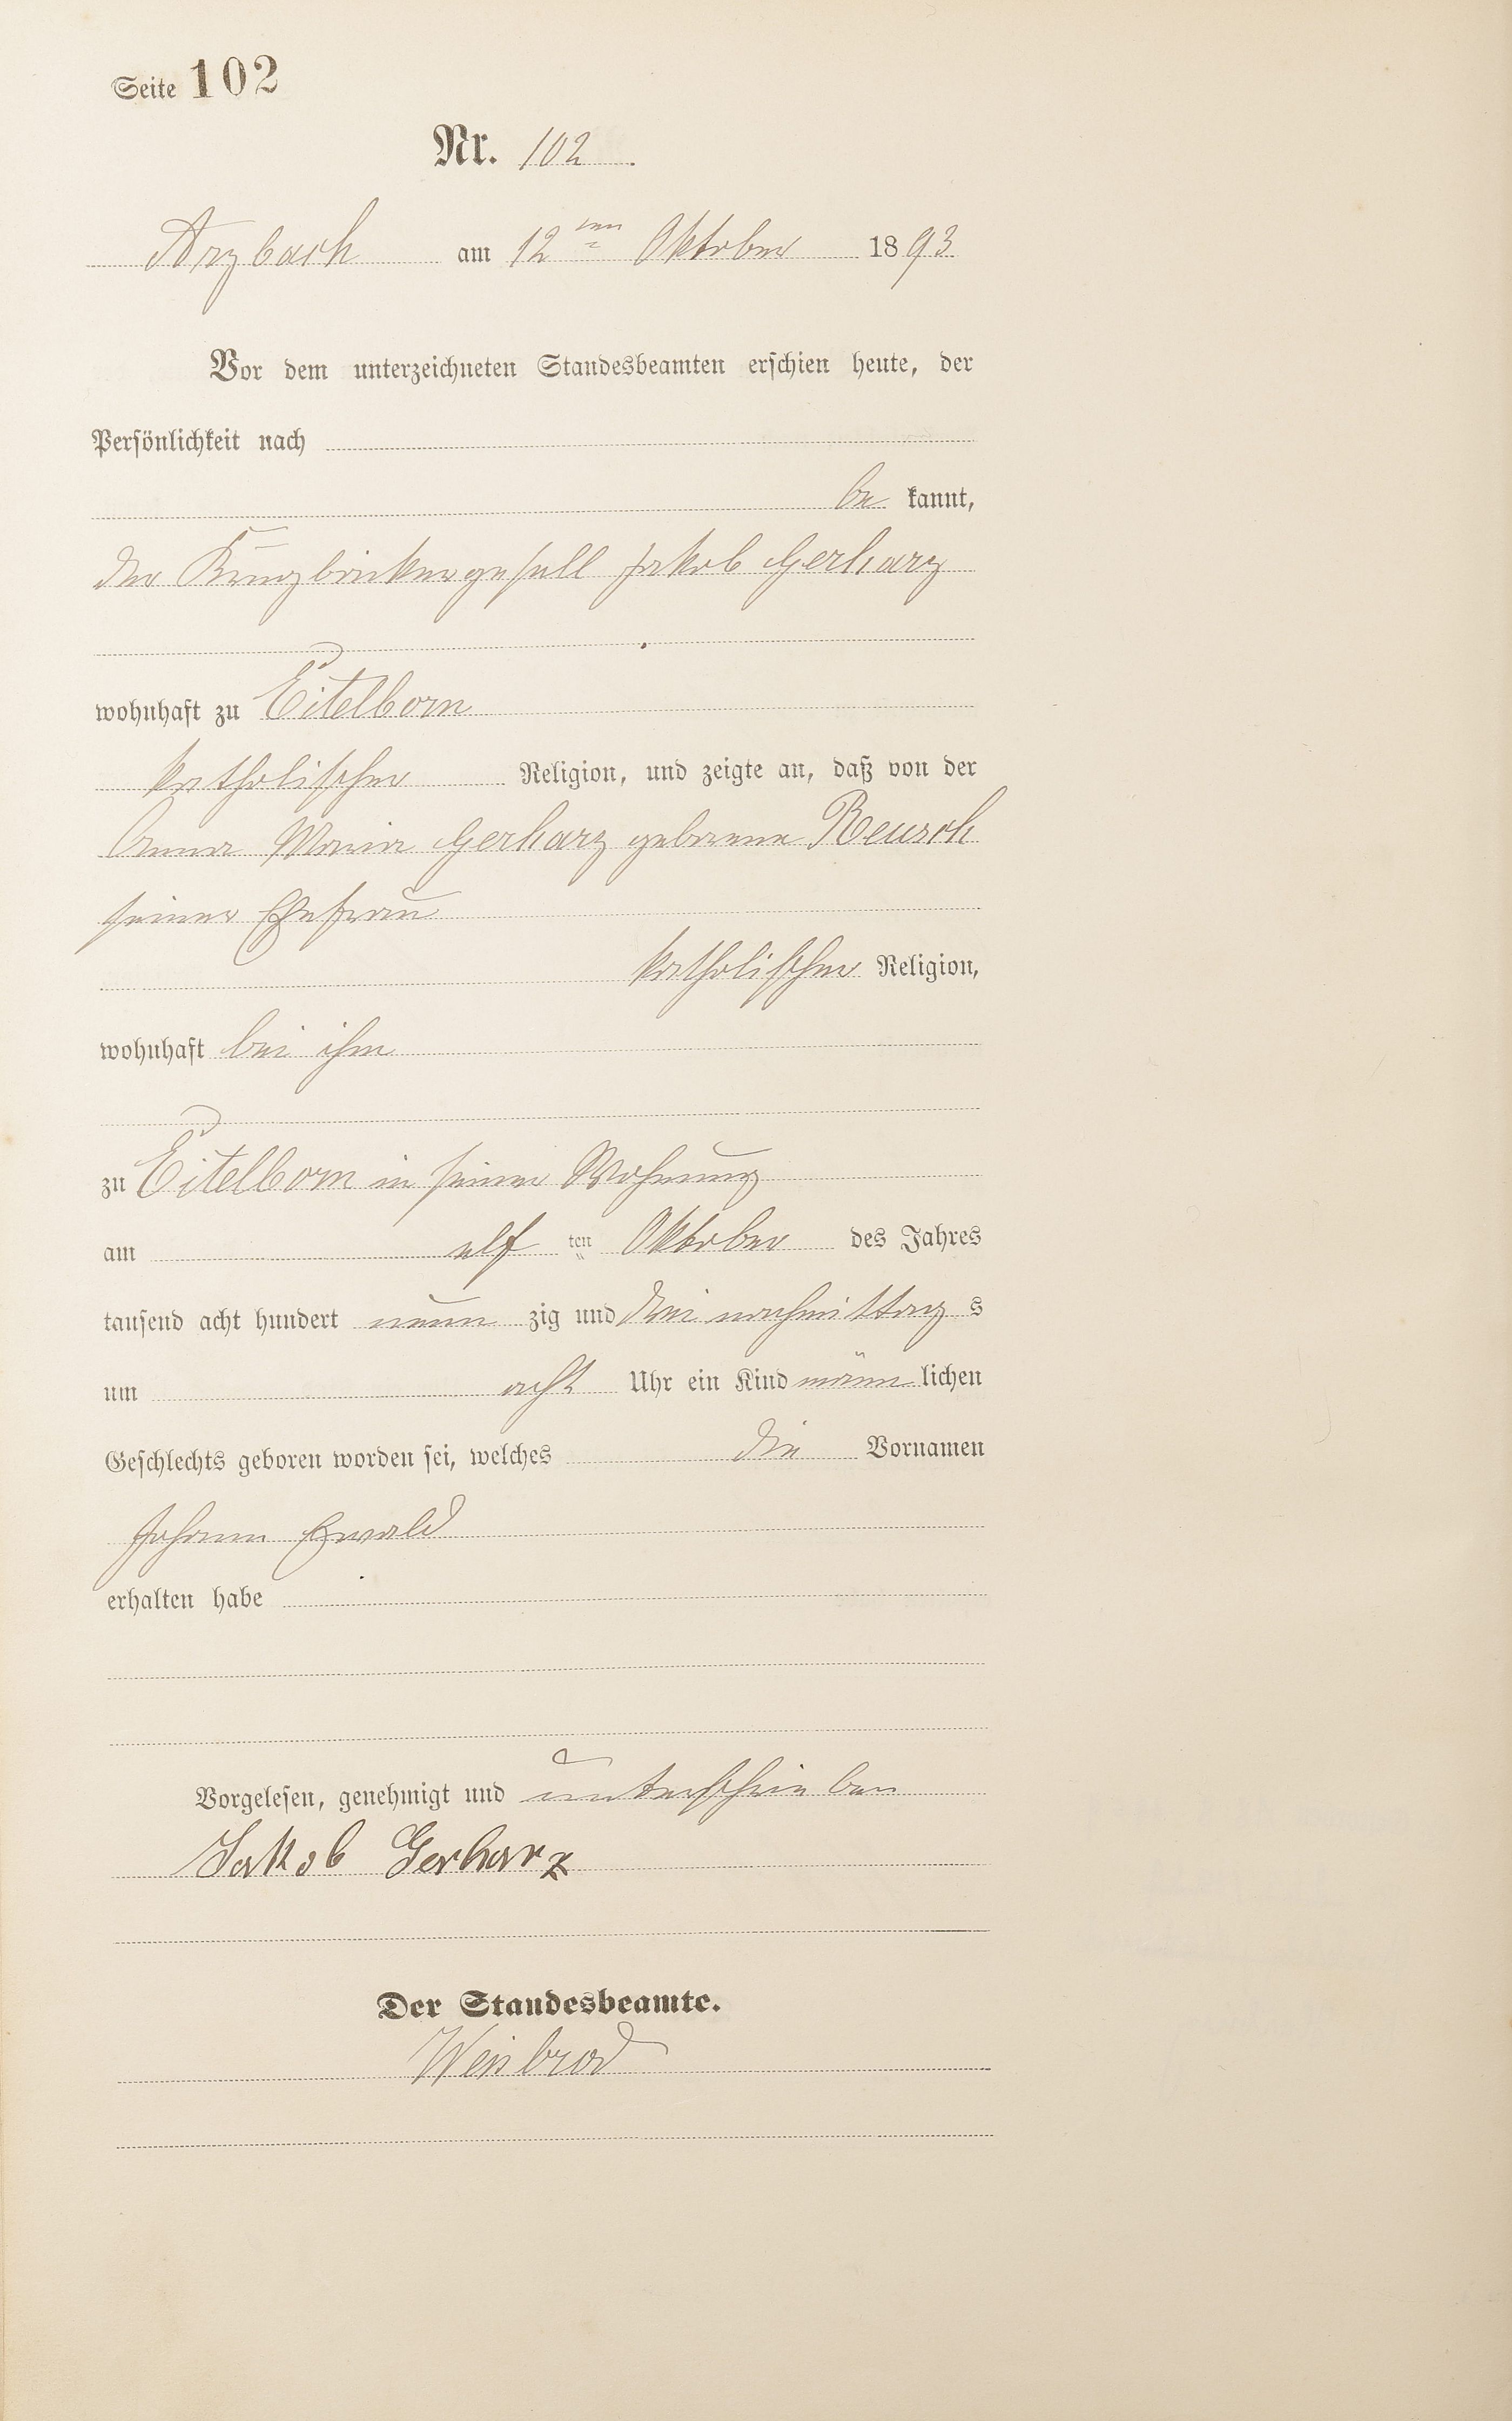 Seite 102
Nr. 102.
Arzbach am 12ten Oktober 1893.
Vor dem unterzeichneten Standesbeamten erschien heute, der
Persönlichkeit nach
be kannt,
der Krugbäckergesell Jakob Gerharz
wohnhaft zu Eitelborn
katholischer Religion, und zeigte an, daß von der
Anna Maria Gerharz geborene Reusch
seiner Ehefrau
katholischer Religion,
wohnhaft bei ihm
zu Eitelborn in seiner Wohnung
am elf ten Oktober des Jahres
tausend acht hundert neun zig und drei nachmittag s
um acht Uhr ein Kind männ lichen
Geschlechts geboren worden sei, welches die Vornamen
Johann Ewald
erhalten habe
Vorgelesen, genehmigt und unterschrieben
Jakob Gerharz
Der Standesbeamte.
Weinbrod